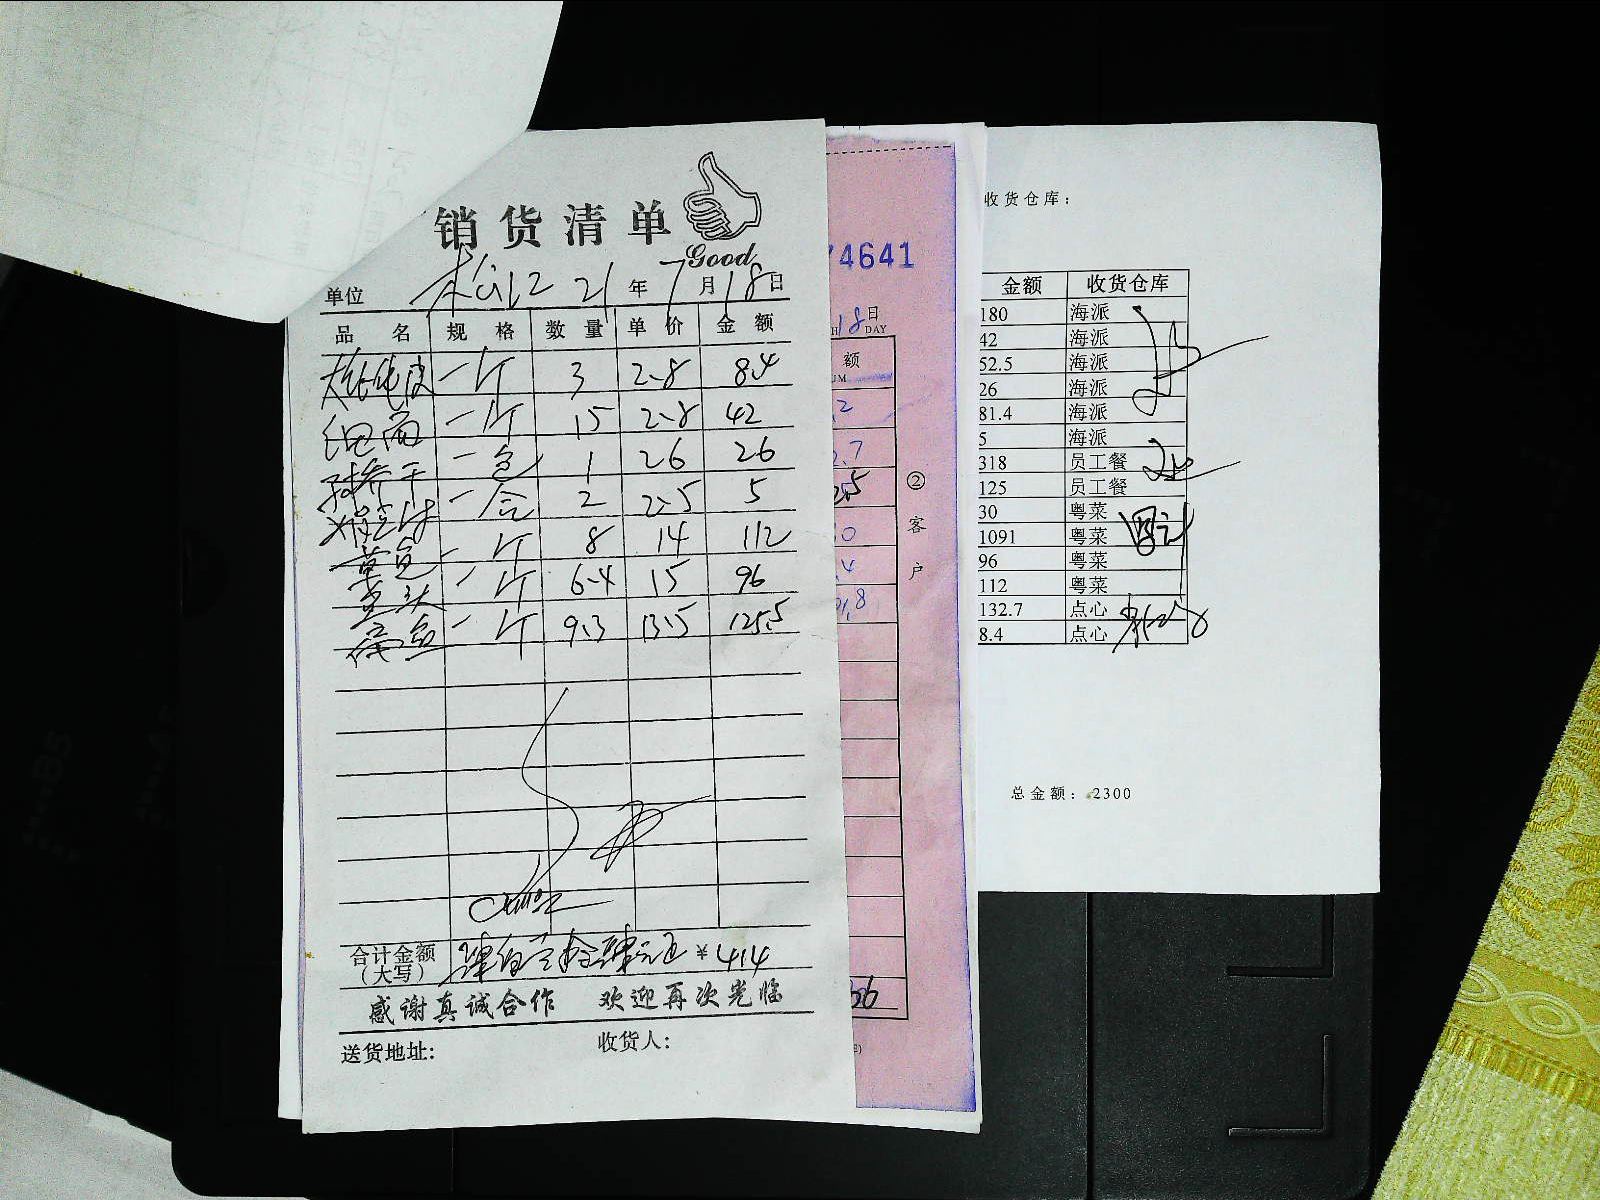 销货清单
Good
单位 21年7月18日
品名 规格 数量 单价 金额
大馄饨皮 一斤 3 2.8 8.4
细面 一斤 15 2.8 42
一包 1 26 26
一合 2 2.5 5
草鱼 一斤 8 14 112
一斤 6.4 15 96
一斤 9.3 13.5 125.5
合计金额(大写) ¥414
感谢真诚合作 欢迎再次光临
送货地址: 收货人:
74641
18日
DAY
额
UM
.2
2.7
.0
.4
1.8
②客户
收货仓库:
金额 收货仓库
180 海派
42 海派
52.5 海派
26 海派
81.4 海派
5 海派
318 员工餐
125 员工餐
30 粤菜
1091 粤菜
96 粤菜
112 粤菜
132.7 点心
8.4 点心
总金额: 2300